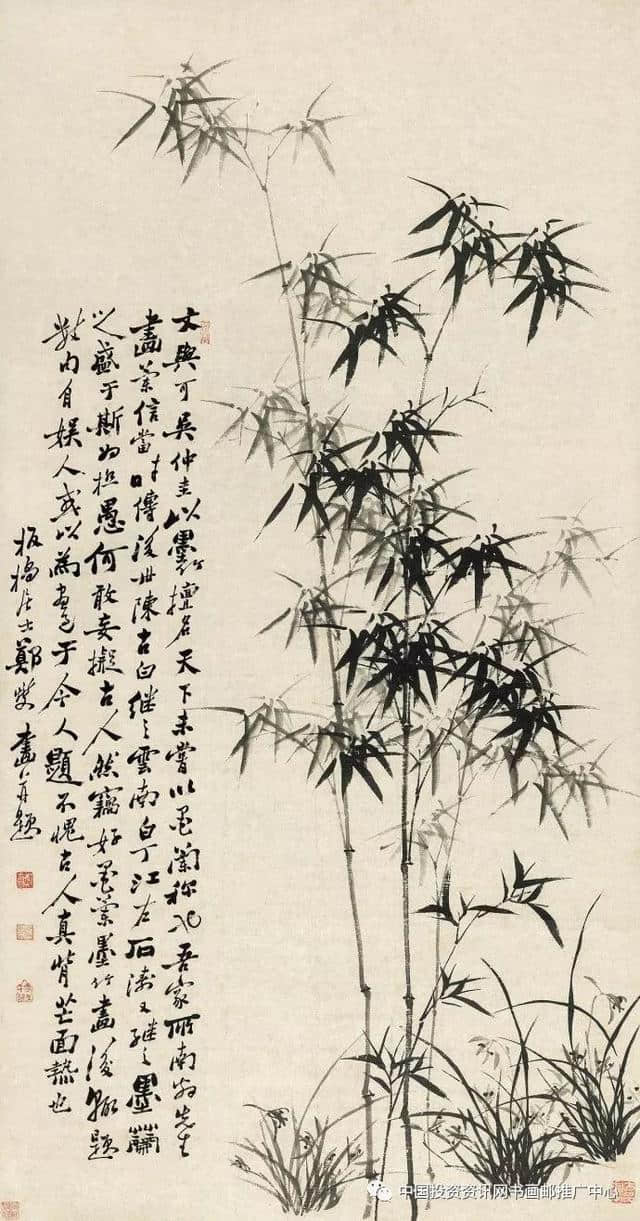 文與可吳仲圭以墨竹擅名天下未嘗以墨蘭稱也吾家所南翁先生
畫蘭信當时傳後世陳古白繼之雲南白丁江左石濤又繼之墨蘭
之盛于斯为極愚何敢妄擬古人然竊好墨蘭墨竹畫後輒題
自娱人或以為畫過于今人題不愧古人真背芒面熱也
板橋居士鄭燮畫并題
中国投资资讯网书画邮推广中心